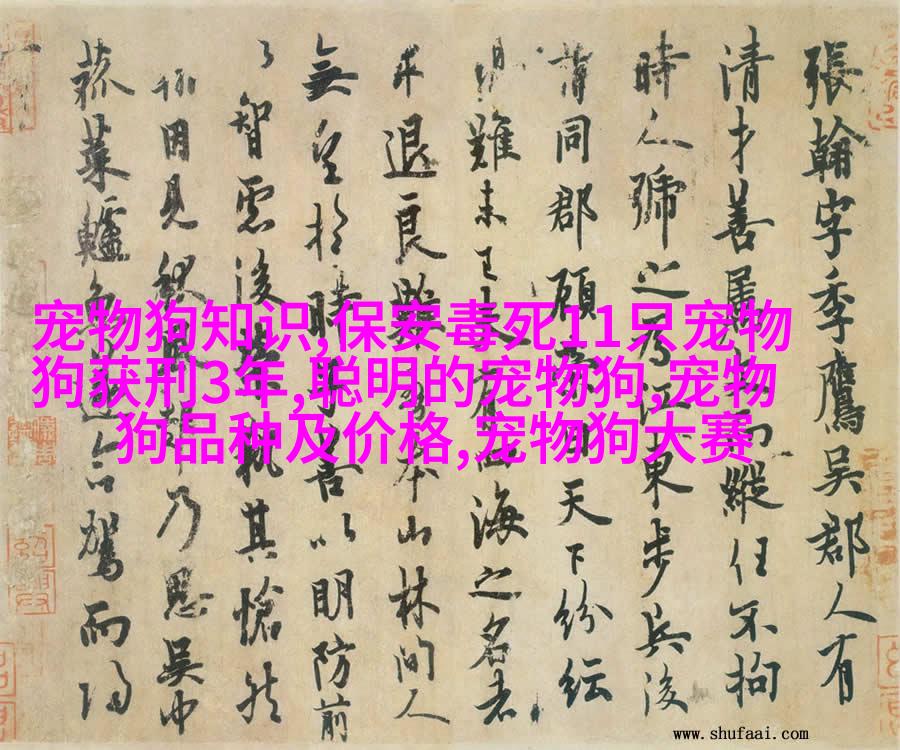 張翰字季鷹吳郡人有
清才善屬文而縱任不拘
時人號之為江東步兵後
謂同郡顧榮曰天下紛紜
難未已夫有四海之名者
求退良難吾本山林間人
無望於時子善以明防前
以智慮後榮執其愴然
翰因見秋風起乃思吳中
菰菜鱸魚遂命駕而歸
宠物狗知识,保安毒死11只宠物
狗获刑3年,聪明的宠物狗,宠物
狗品种及价格,宠物狗大赛
www.shufaai.com